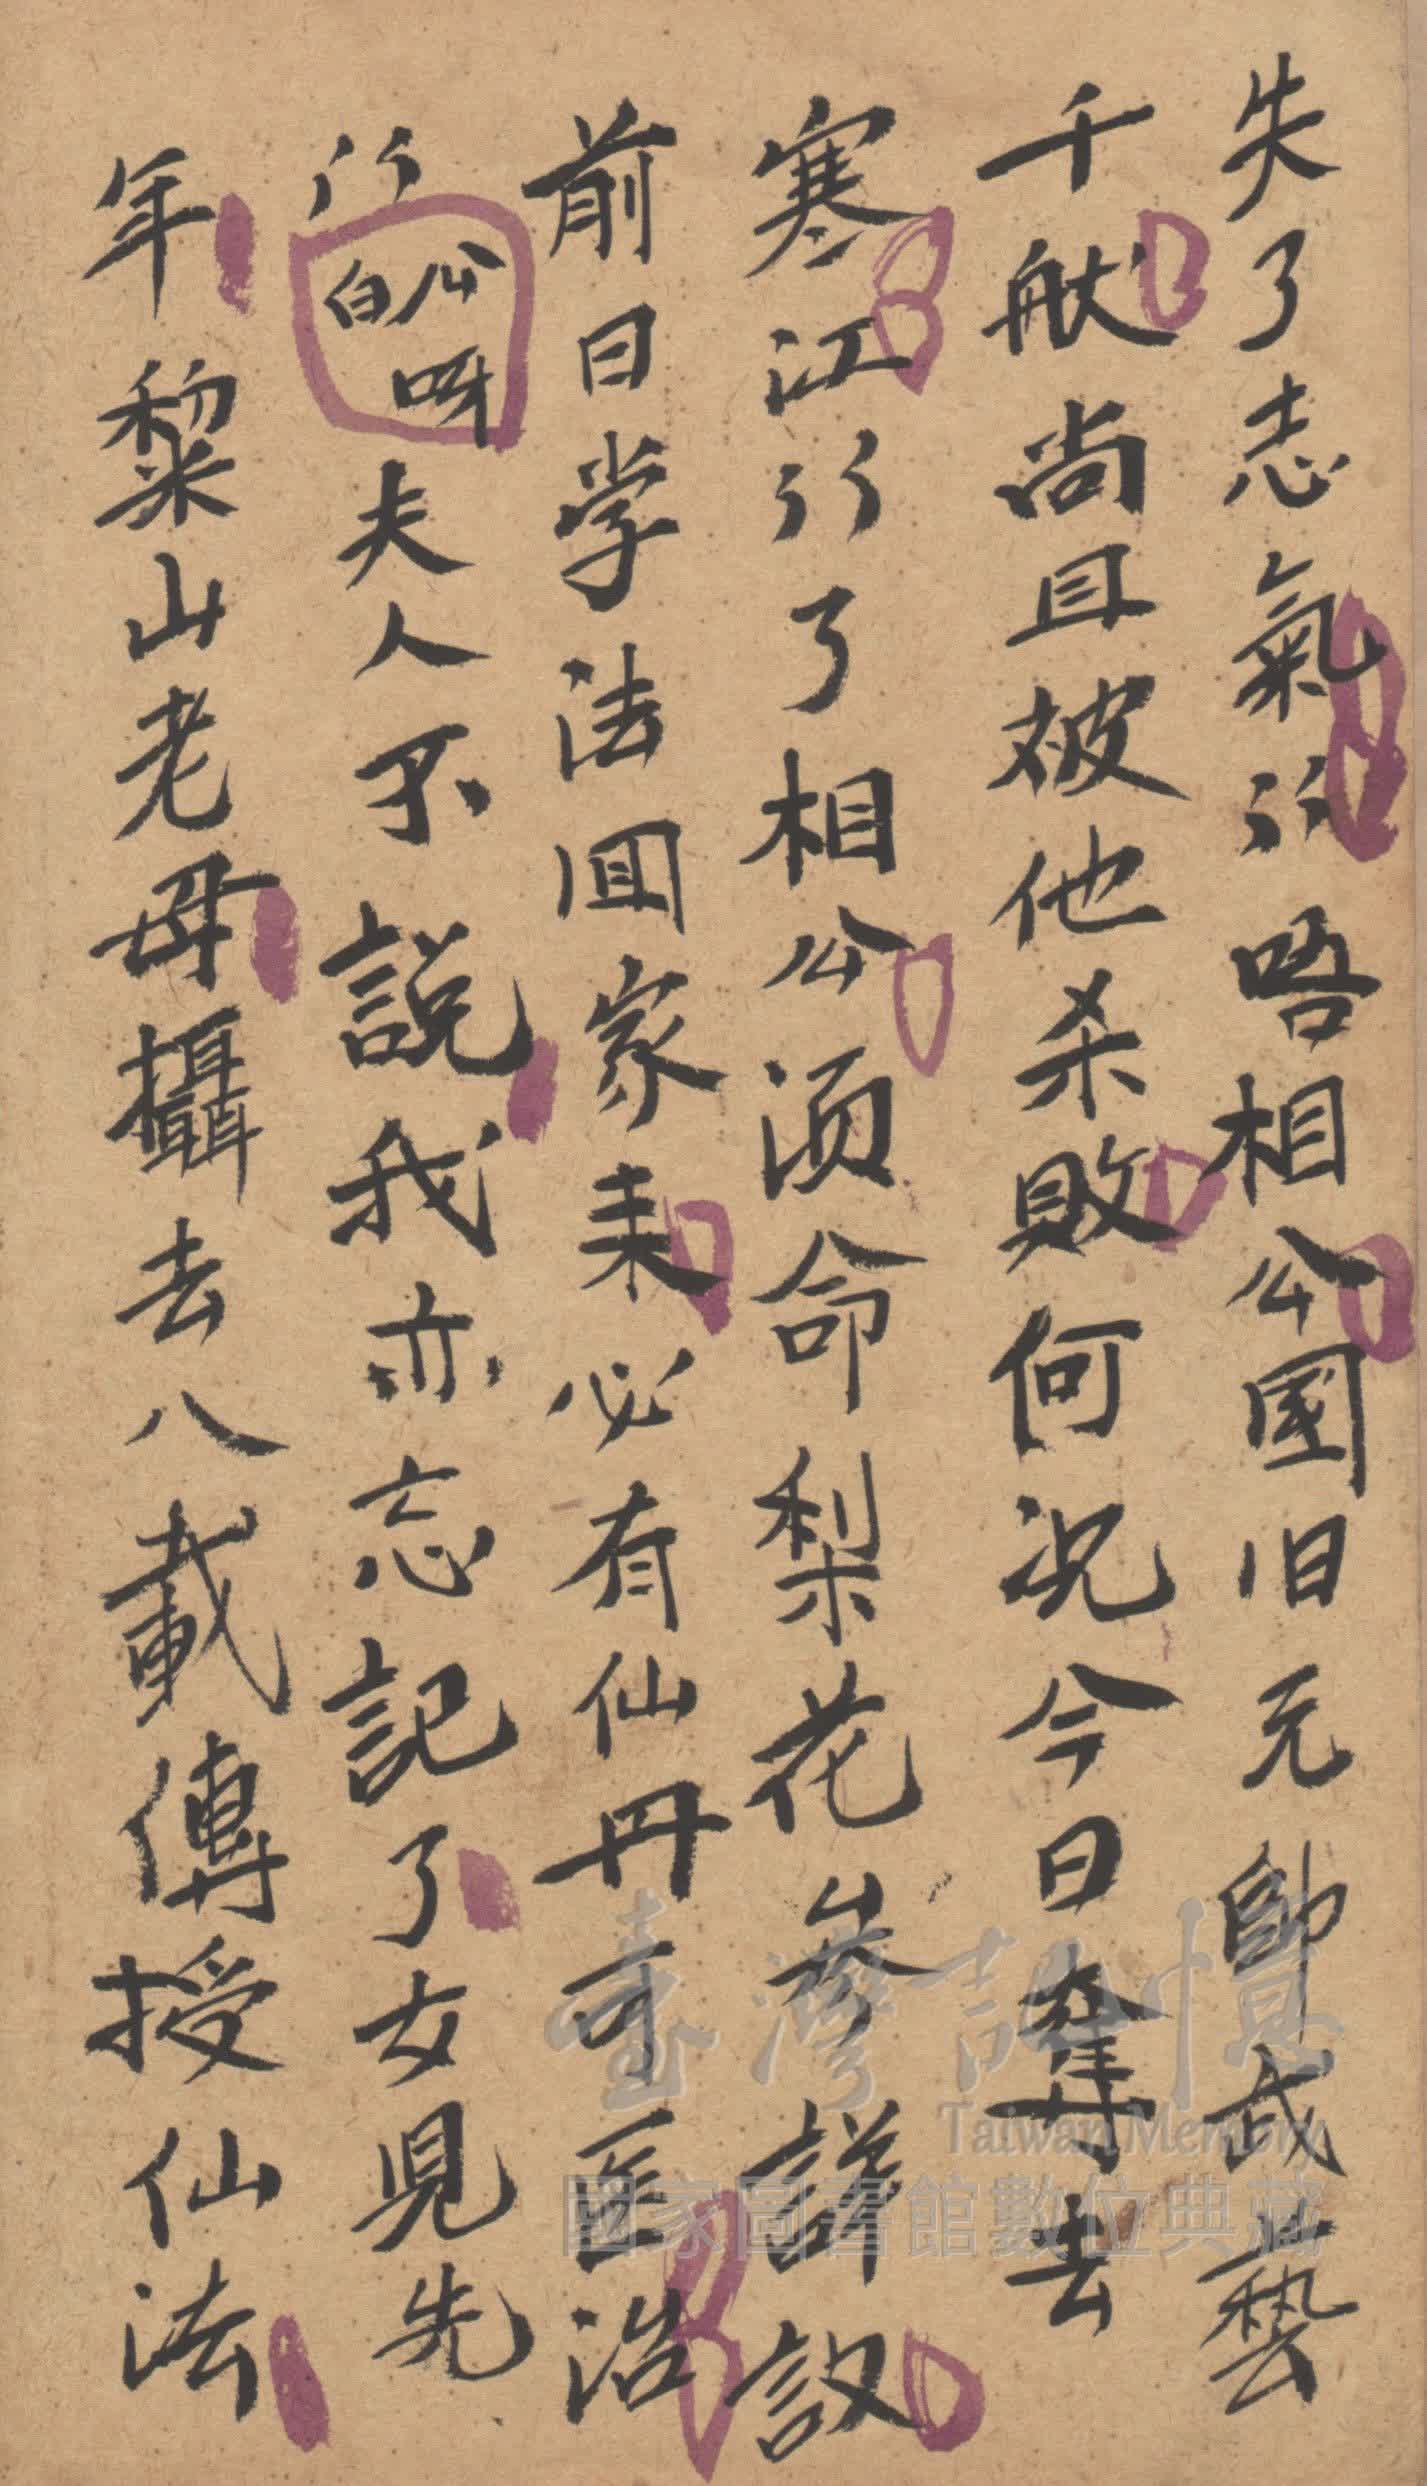 失了志氣行唔相公國旧元帥武藝
千献尚且被他杀敗何况今日奪去
寒江行了相公须命梨花參詳設
前日学法囬家来必有仙丹可医治
行公白呀夫人不説我亦忘記了女児先
年黎山老母攝去八載傳授仙法
臺灣記憶
Taiwan Memory
國家圖書館數位典藏